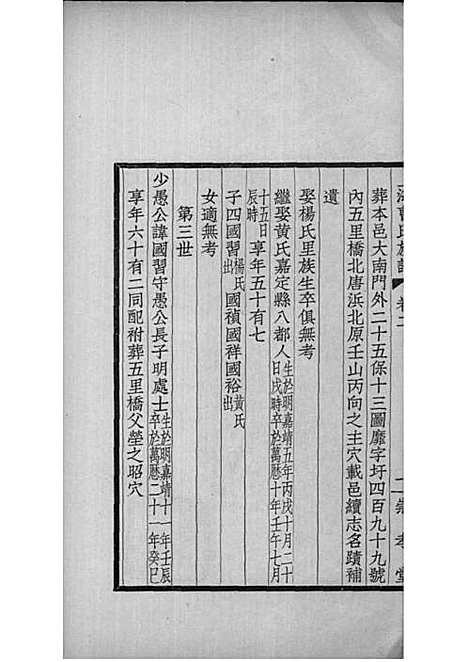 曹氏族譜 卷二 二 崇孝堂
葬本邑大南門外二十五保十三圖靡字圩四百九十九號
內五里橋北唐浜北原壬山丙向之主穴載邑續志名蹟補
遺
娶楊氏里族生卒俱無考
繼娶黃氏嘉定縣八都人生於明嘉靖五年丙戌十月二十日戌時卒於萬曆十年壬午七月
十五日辰時享年五十有七
子四國習楊氏出國禎國祥國裕黃氏出
女適無考
第三世
少愚公諱國習守愚公長子明處士生於明嘉靖十一年壬辰卒於萬曆二十一年癸巳
享年六十有二同配祔葬五里橋父塋之昭穴